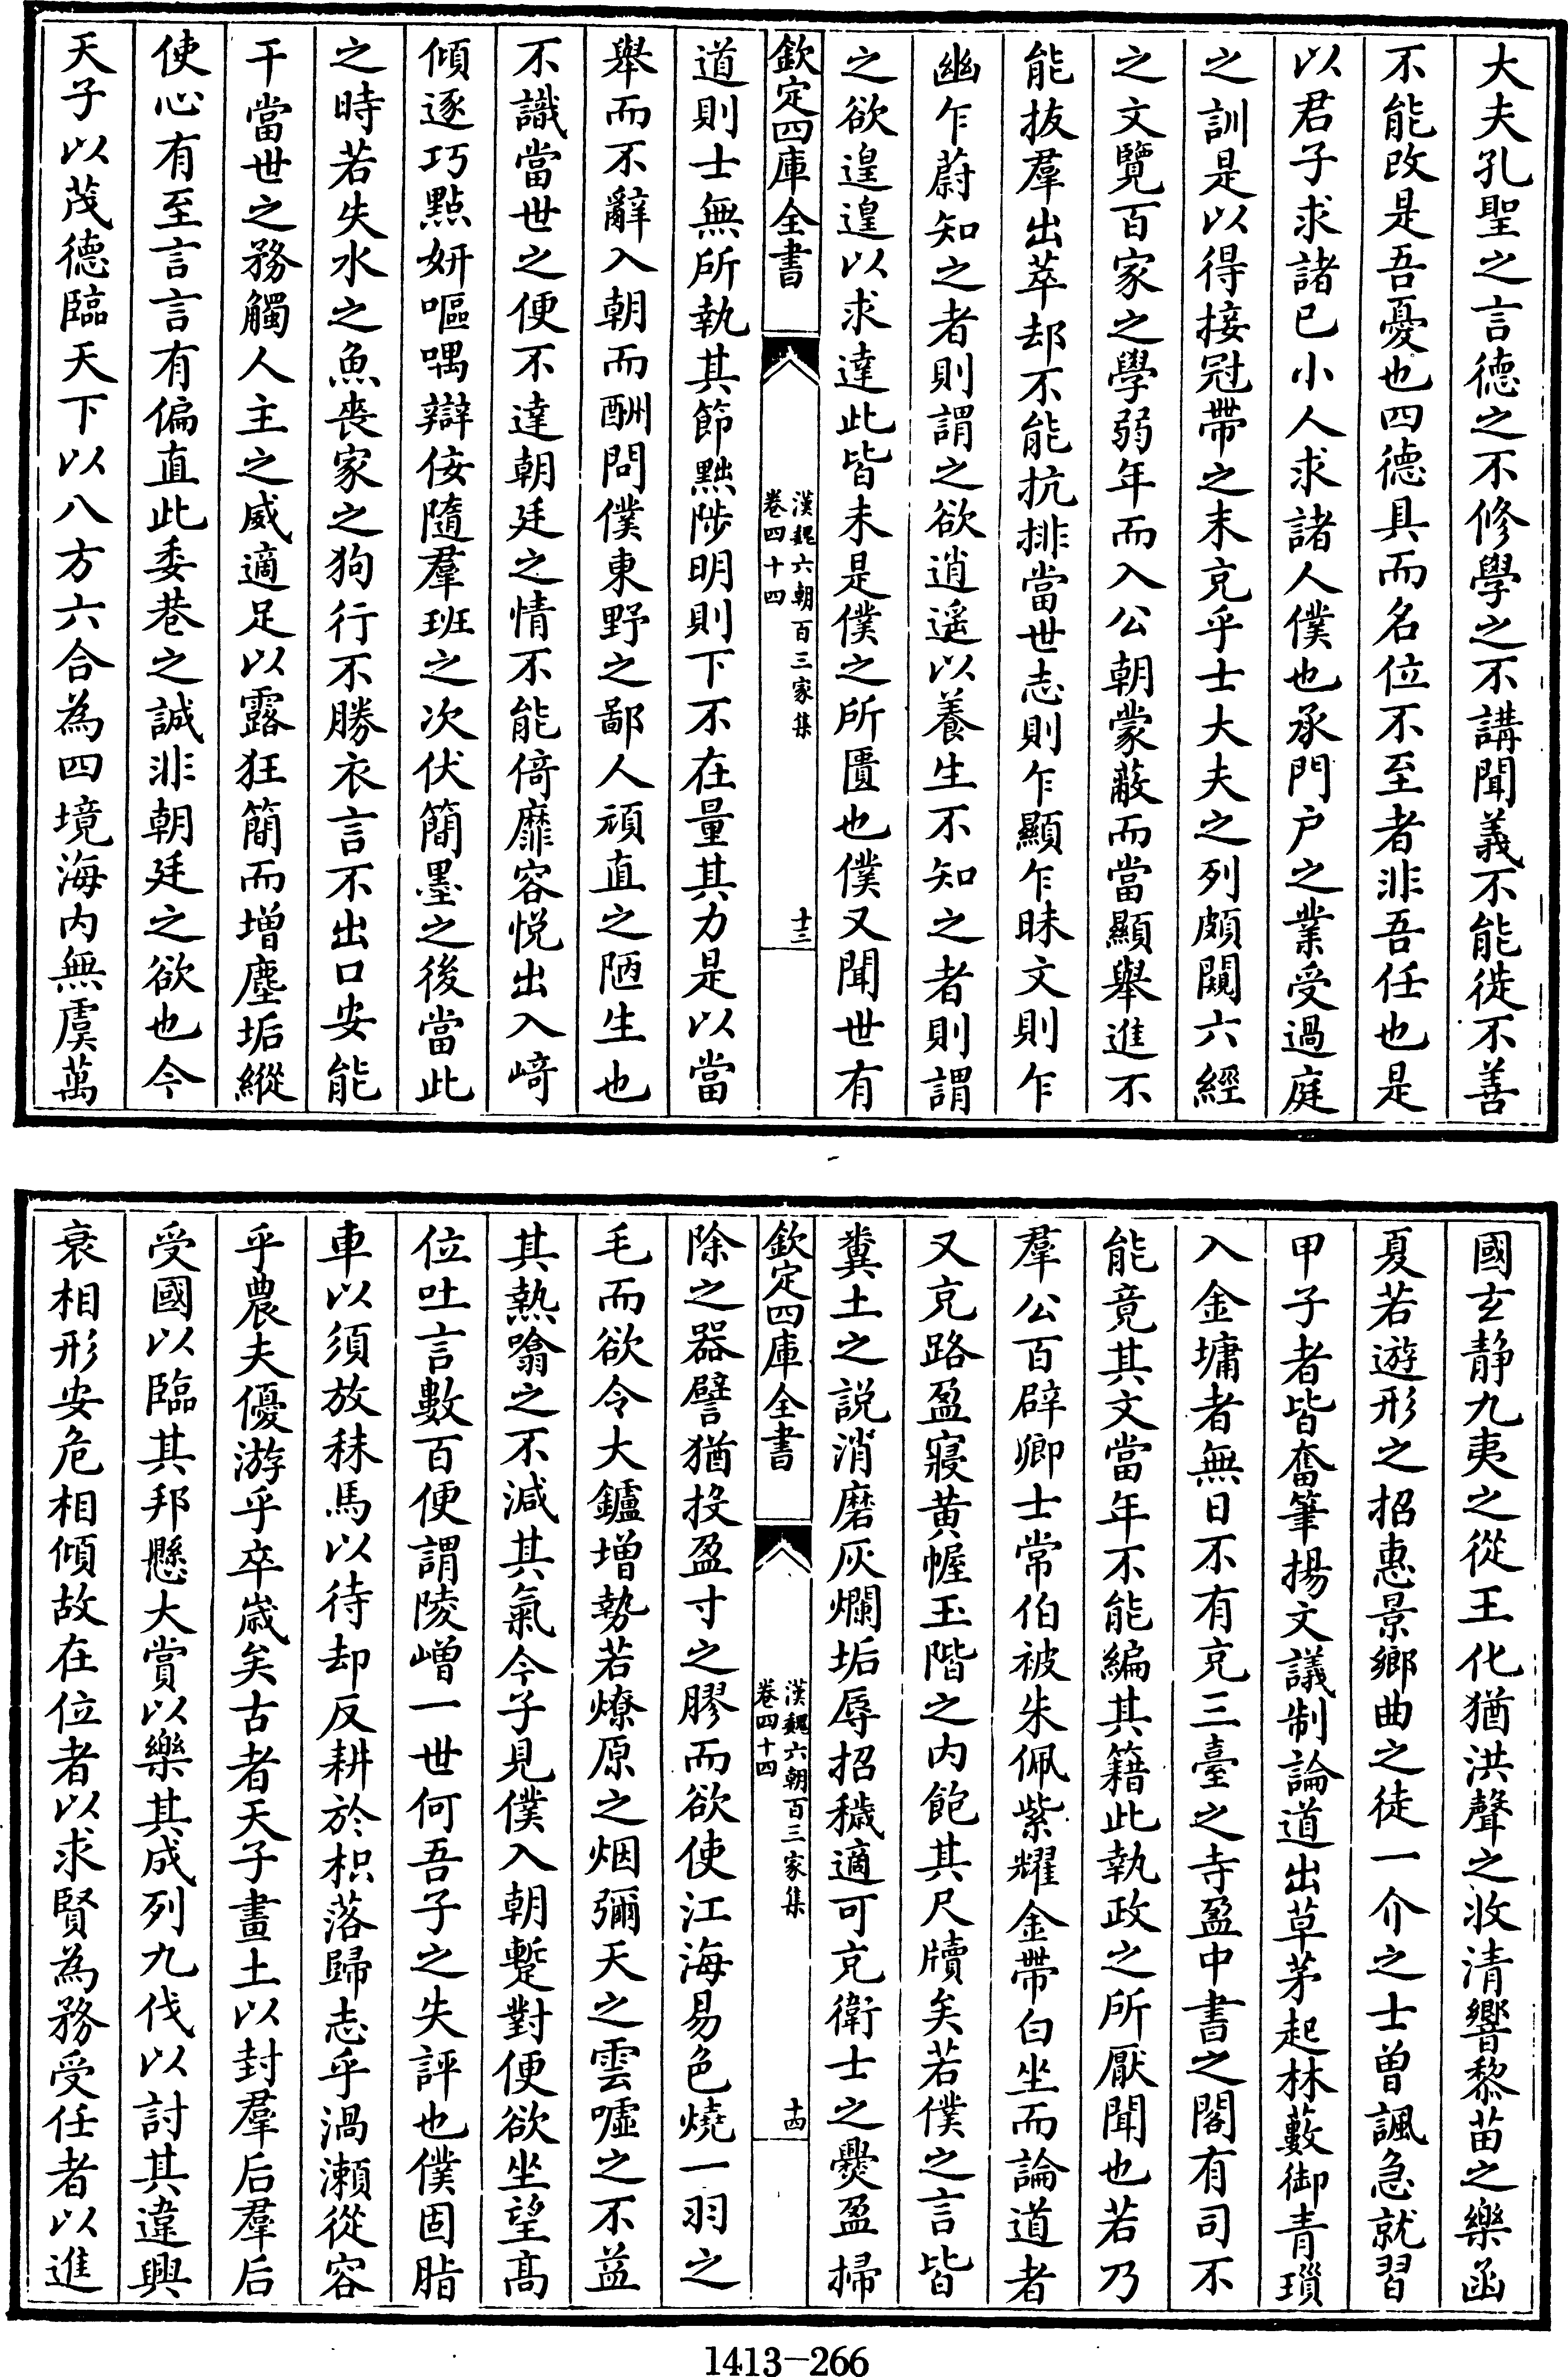 大夫孔聖之言德之不修學之不講聞義不能徙不善
不能改是吾憂也四德具而名位不至者非吾任也是
以君子求諸已小人求諸人僕也承門户之業受過庭
之訓是以得接冠帶之末充乎士大夫之列頗闚六經
之文覽百家之學弱年而入公朝蒙蔽而當顯舉進不
能抜羣出萃却不能抗排當世志則乍顯乍昧文則乍
幽乍蔚知之者則謂之欲逍遥以養生不知之者則謂
之欲遑遑以求達此皆未是僕之所匱也僕又聞世有
欽定四庫全書
漢魏六朝百三家集
卷四十四
十三
道則士無所執其節黜陟明則下不在量其力是以當
舉而不辭入朝而酬問僕東野之鄙人頑直之陋生也
不識當世之便不達朝廷之情不能倚靡容悦出入崎
傾逐巧點妍嘔喁辯佞隨羣班之次伏簡墨之後當此
之時若失水之魚喪家之狗行不勝衣言不出口安能
干當世之務觸人主之威適足以露狂簡而增塵垢縱
使心有至言言有偏直此委巷之誠非朝廷之欲也今
天子以茂德臨天下以八方六合為四境海内無虞萬
國玄静九夷之從王化猶洪聲之收清響黎苗之樂函
夏若遊形之招惠景鄉曲之徒一介之士曾諷急就習
甲子者皆奮筆揚文議制論道出草茅起林藪御青瑣
入金墉者無日不有充三臺之寺盈中書之閣有司不
能竟其文當年不能編其籍此執政之所厭聞也若乃
羣公百辟卿士常伯被朱佩紫耀金帶白坐而論道者
又充路盈寢黄幄玉階之内飽其尺牘矣若僕之言皆
糞土之説消磨灰爛垢辱招穢適可充衛士之㸑盈掃
欽定四庫全書
漢魏六朝百三家集
卷四十四
十四
除之器譬猶投盈寸之膠而欲使江海易色燒一羽之
毛而欲令大鑪增勢若燎原之烟彌天之雲噓之不益
其熱噏之不減其氣今子見僕入朝蹔對便欲坐望髙
位吐言數百便謂陵嶒一世何吾子之失評也僕固脂
車以須放秣馬以待却反耕於枳落歸志乎渦瀬從容
乎農夫優游乎卒嵗矣古者天子畫土以封羣后羣后
受國以臨其邦懸大賞以樂其成列九伐以討其違興
衰相形安危相傾故在位者以求賢為務受任者以進
1413-266